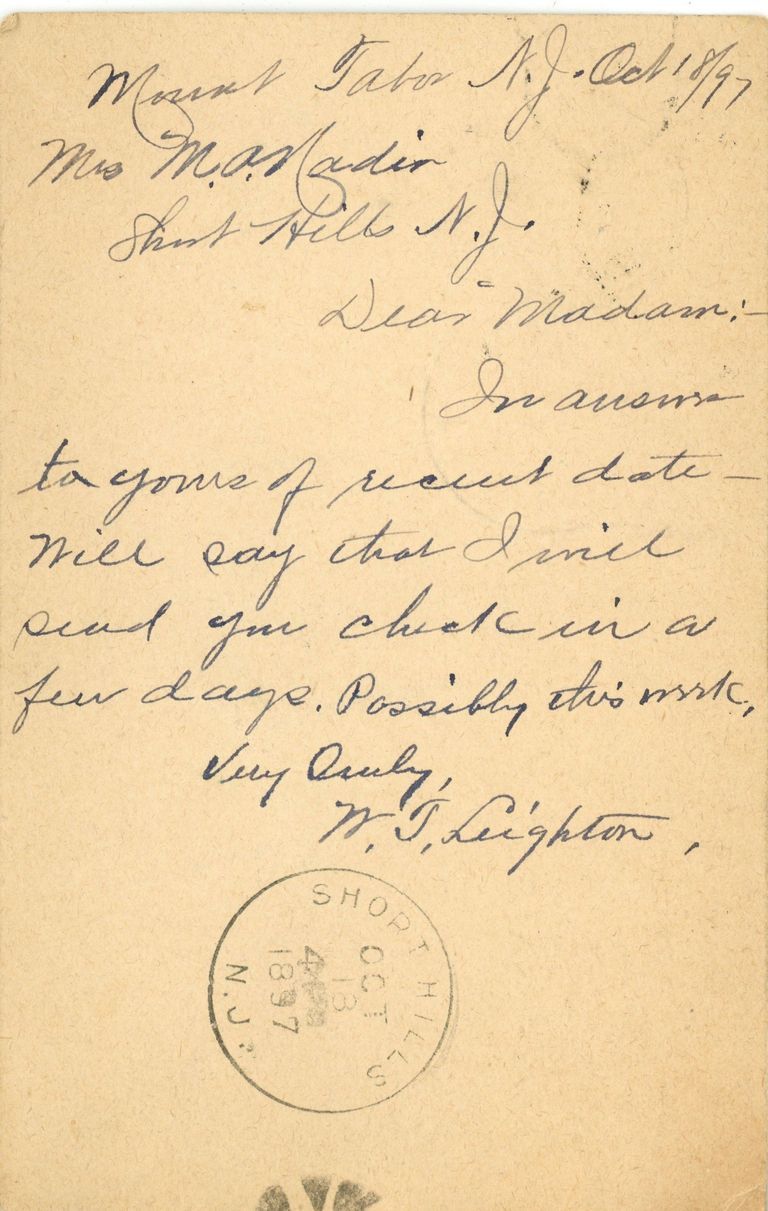 Mount Tabor N.J. Oct 18/97
Mrs M.A. Nadin
Short Hills N.J.
Dear Madam:-
In answer
to yours of recent date -
Will say that I will
send you check in a
few days. Possibly this week,
Very Truly,
W. T. Leighton,
SHORT HILLS
OCT
18
4 PM
1897
N.J.